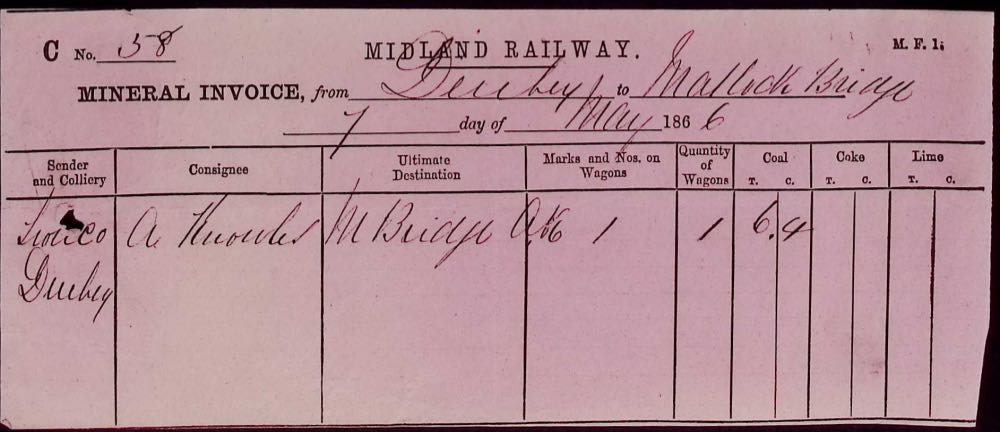 C No. 58 MIDLAND RAILWAY. M. F. 1.
MINERAL INVOICE, from Denbey to Matlock Bridge
7 day of May 1866
Sender and Colliery Consignee Ultimate Destination Marks and Nos. on Wagons Quantity of Wagons Coal Coke Lime
T. C. T. C. T. C.
A Knowles M Bridge 1 1 6. 4
Denbey